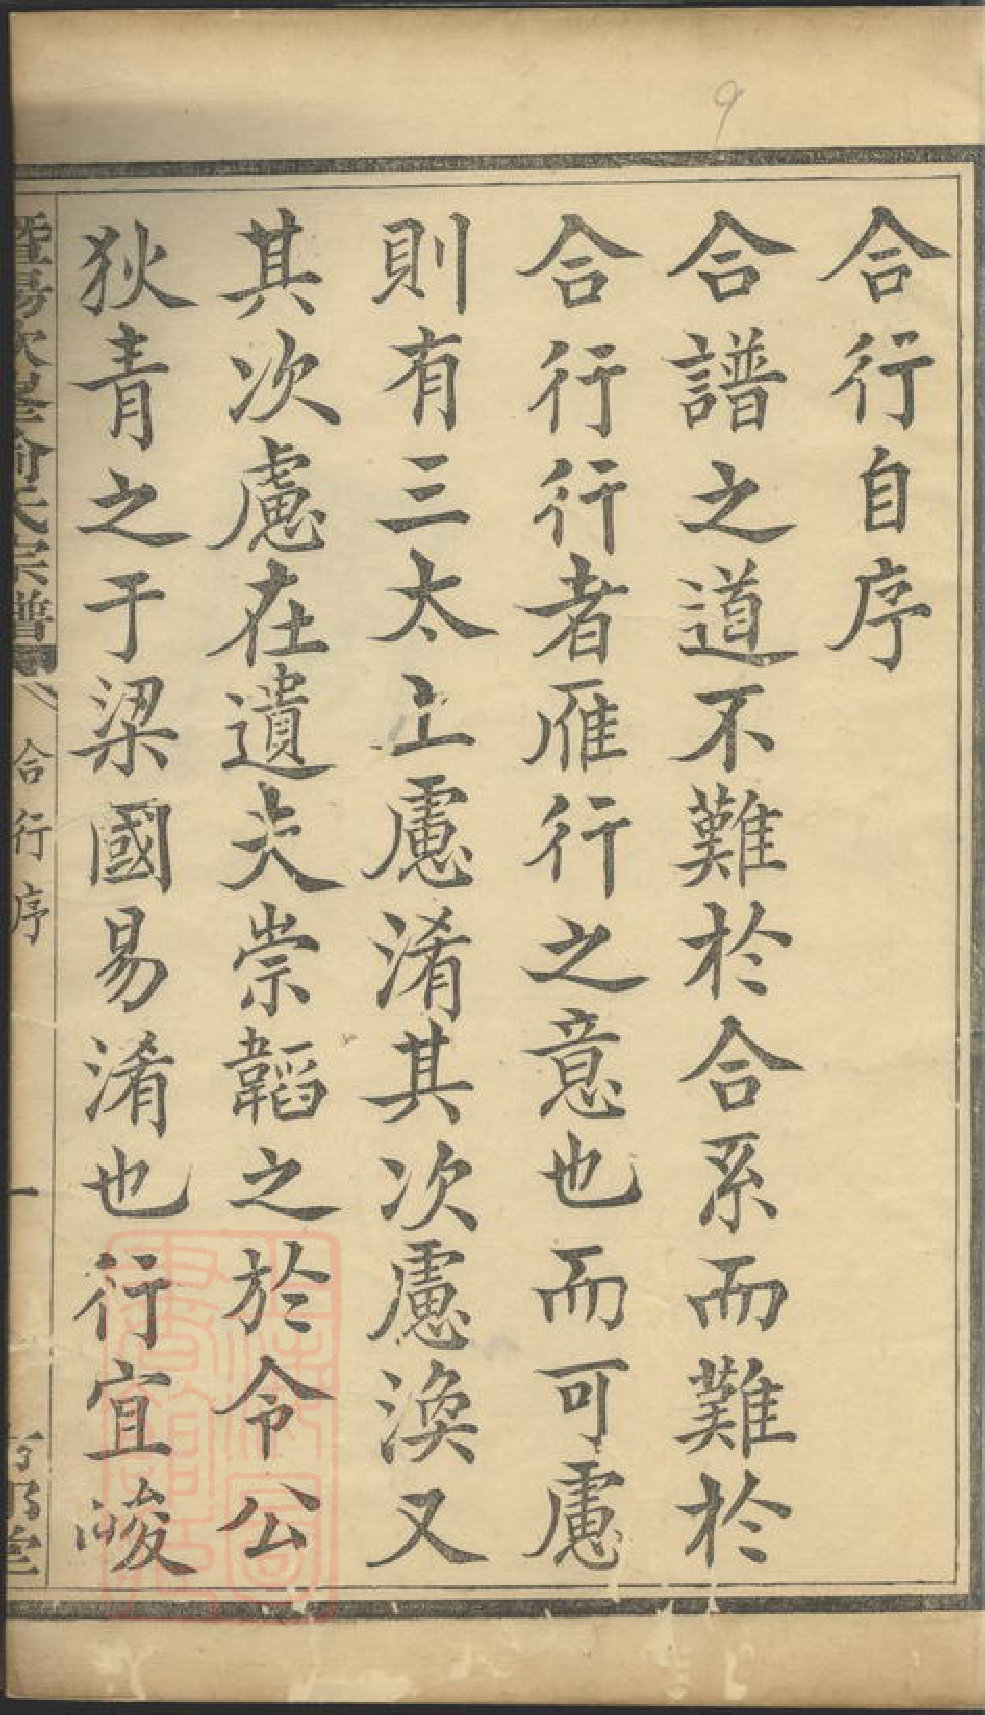 合行自序
合譜之道不難於合系而難於
合行行者雁行之意也而可慮
則有三太上慮淆其次慮渙又
其次慮在遺夫崇韜之於令公
狄青之于梁國易淆也行宜峻
宗譜
合行序
一